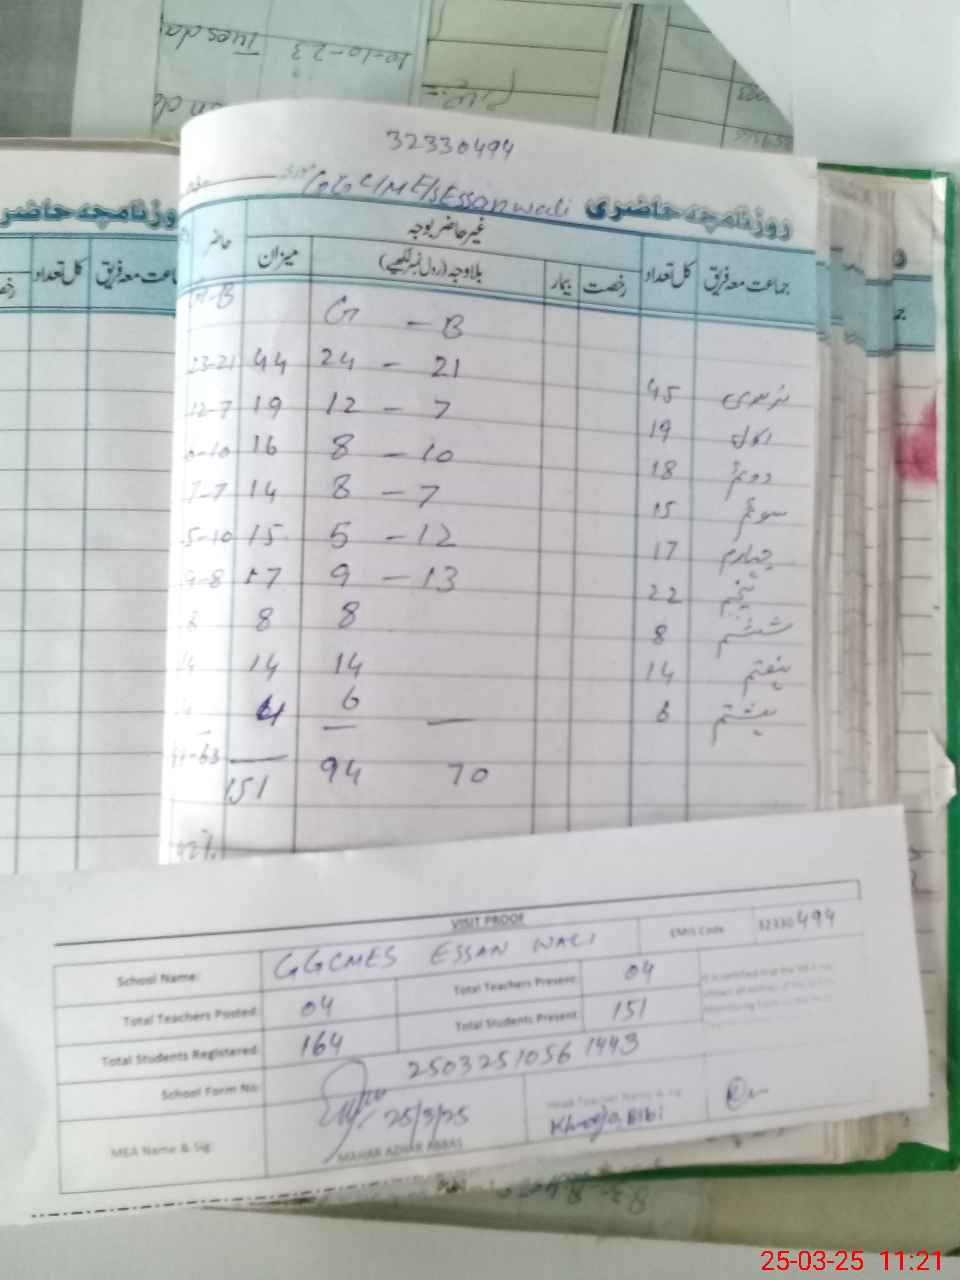 Tuesda
10-10-23
32330494
GGCMES Essanwali روزنامچہ حاضری
غیر حاضر بوجہ
جماعت معہ فریق کل تعداد رخصت بیمار بلاوجہ (رول نمبر لکھیے) میزان حاضر
G-B G - B
نرسری 45 24 - 21 44 23-21
اول 19 12 - 7 19 12-7
دوئم 18 8 - 10 16 10
سوئم 15 8 - 7 14 7-7
چہارم 17 5 - 12 15 5-10
پنجم 22 9 - 13 17 9-8
ششم 8 8 8 8
ہفتم 14 14 14 14
ہشتم 6 6 4
94 70 151
92%
روزنامچہ حاضر
جماعت معہ فریق کل تعداد
VISIT PROOF
School Name: GGCMES ESSAN WALI EMIS Code 32330494
Total Teachers Posted: 04 Total Teachers Present: 04
Total Students Registered: 164 Total Students Present: 151
School Form No: 2503251056 1443
MEA Name & Sig: 25/3/25 MAHAR AZHAR ABBAS Head Teacher Name & Sig Khwaja Bibi
25-03-25 11:21